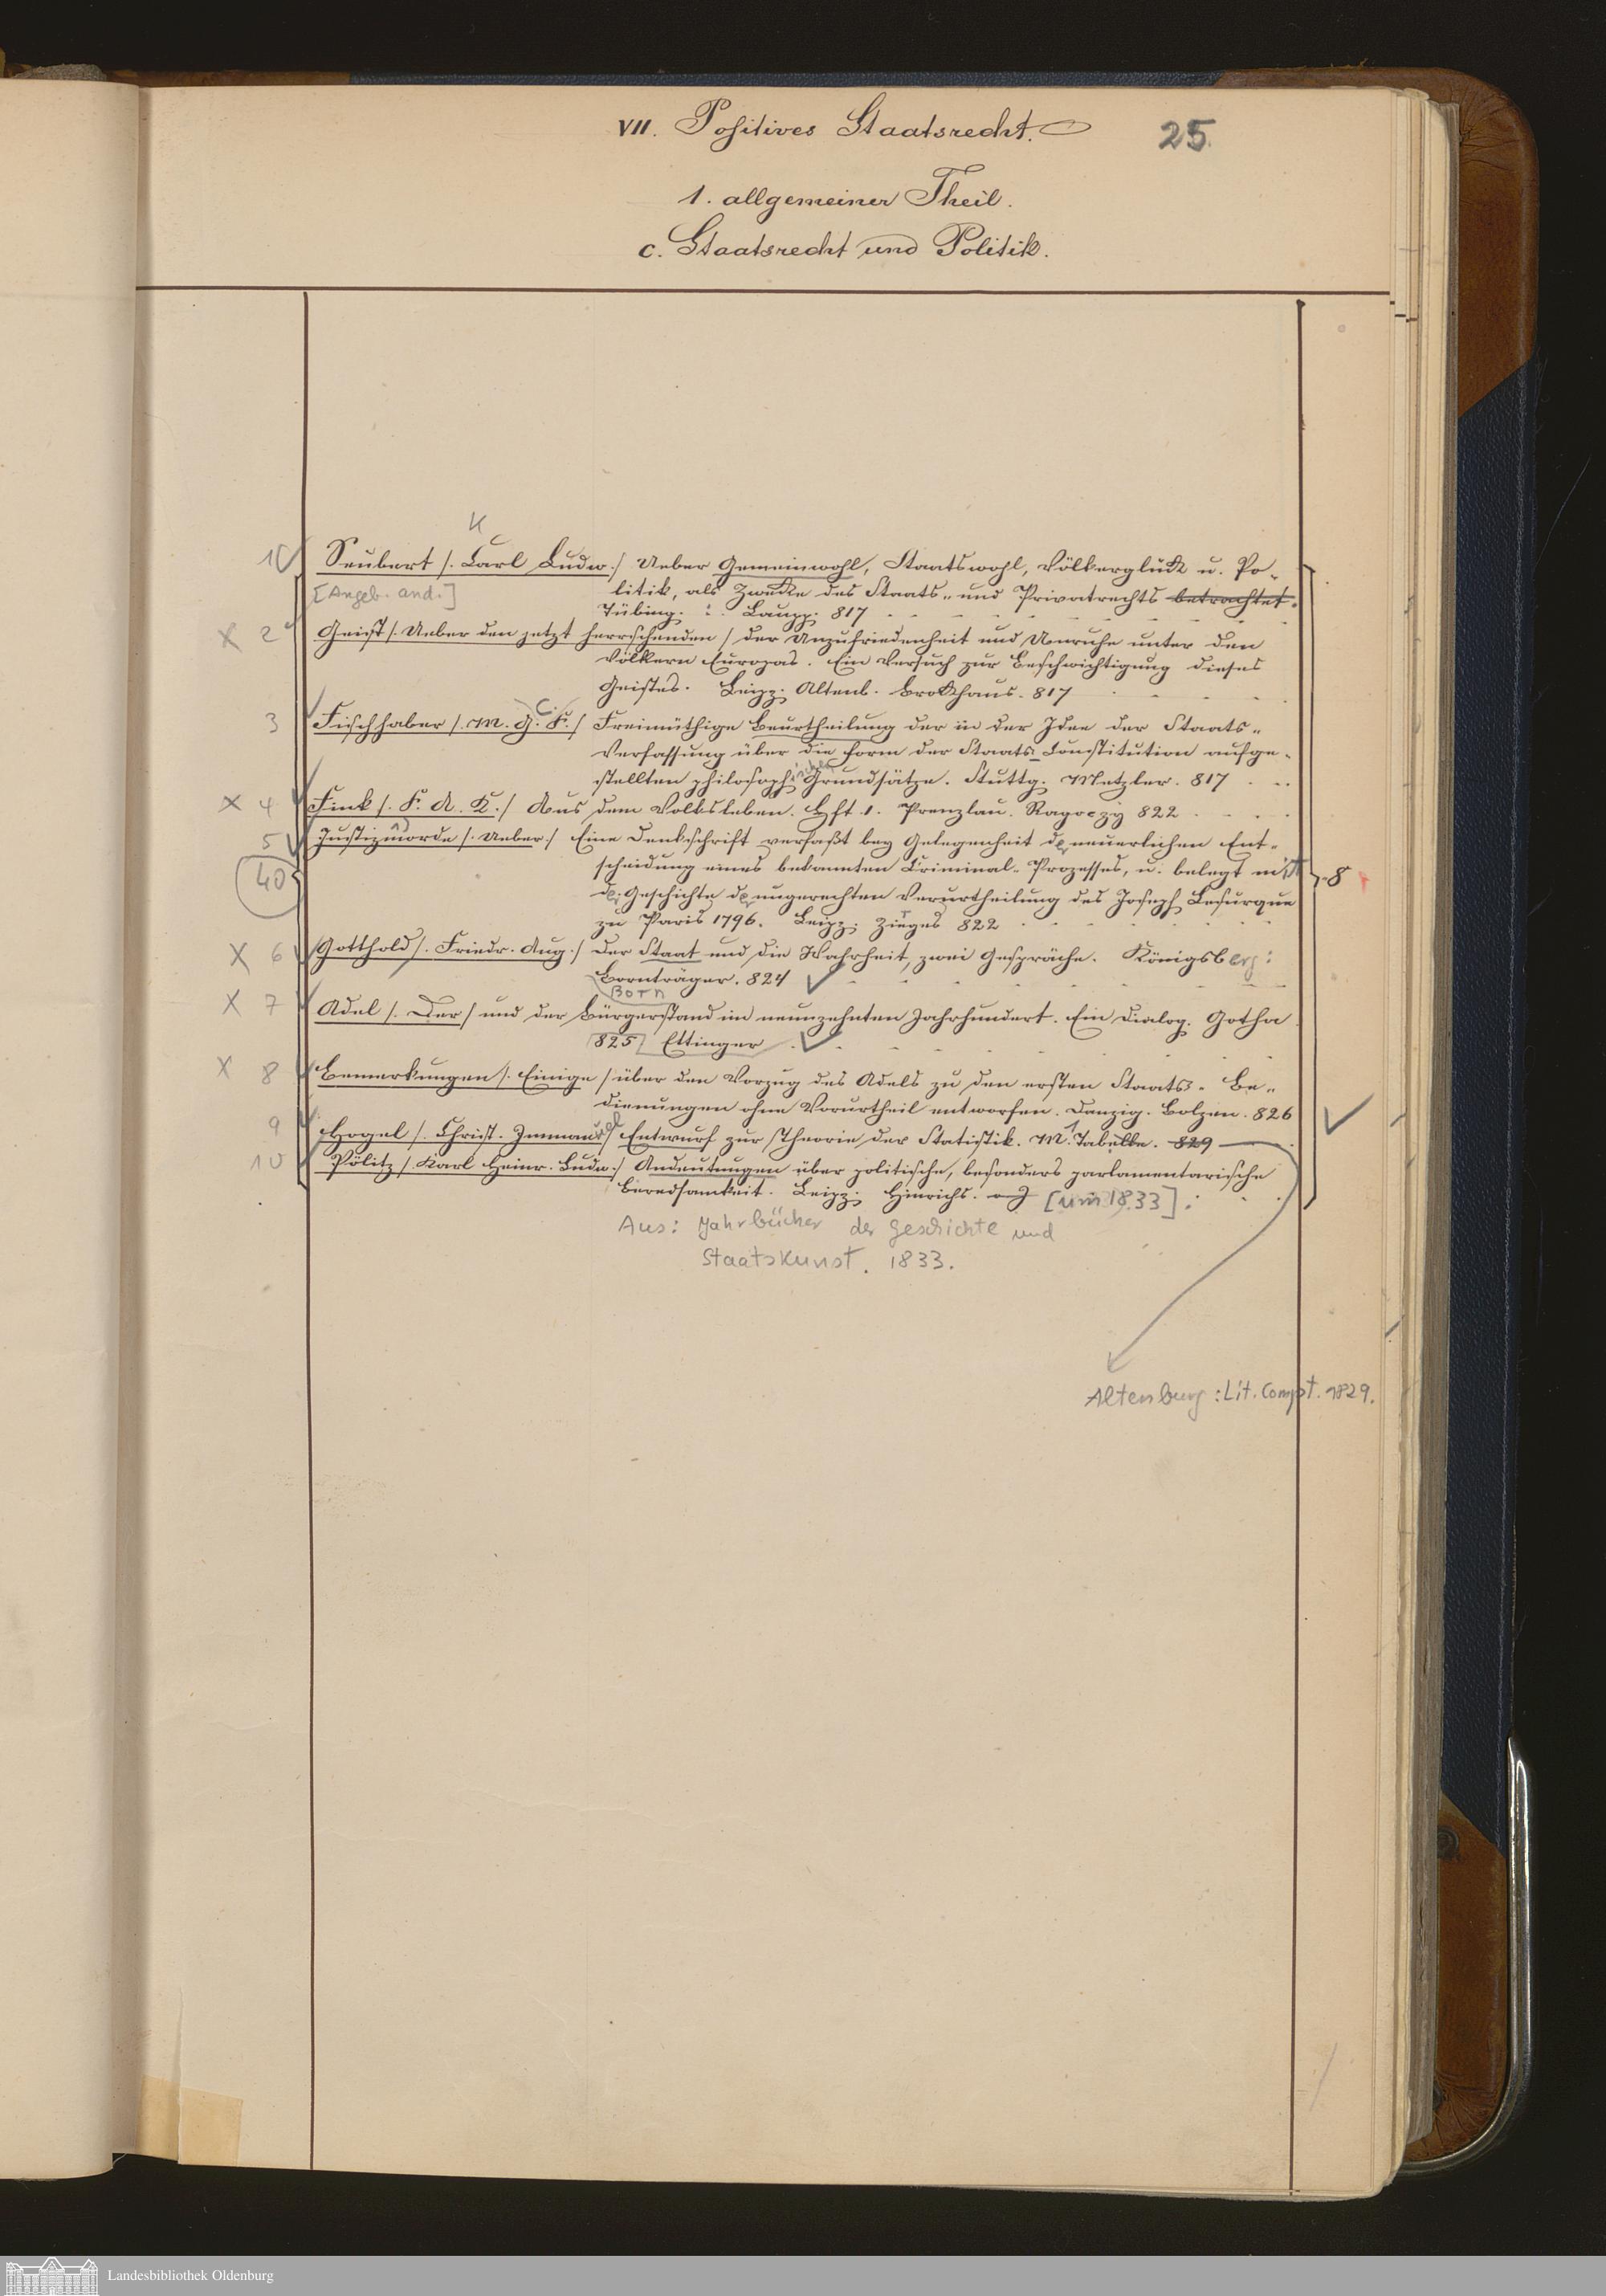 VII. Positives Staatsrecht. 25.
1. allgemeiner Theil.
c. Staatsrecht und Politik.
K
1 Seubert /. Carl Ludw./ Ueber Gemeinwohl, Staatswohl, Völkerglück u. Po-
[Angeb. and.] litik, als Zwecke des Staats- und Privatrechts betrachtet.
Tübing. Laupp. 817
X 2 Geist /. Ueber den jetzt herrschenden / der Unzufriedenheit und Unruhe unter den
Völkern Europas. Ein Versuch zur Beschwichtigung dieses
Geistes. Leipz. Altenb. Brockhaus. 817
C.
3 Fischhaber /. M. G. F./ Freimüthige Beurtheilung der in der Idee der Staats-
Verfassung über die Form der Staats-Constitution aufge-
stellten philosophischen Grundsätze. Stuttg. Metzler. 817
X 4 Fink /. F. A. K./ Aus dem Volksleben. Hft 1. Prenzlau. Ragoczy 822
5 Justizmorde /. Ueber / Eine Denkschrift verfaßt bey Gelegenheit der neuerlichen Ent-
40 scheidung eines bekannten Criminal-Prozesses, u. belegt mit 8
d. Geschichte der ungerechten Verurtheilung des Joseph Lesurque
zu Paris 1796. Leipz. Zirges 822
X 6 Gotthold /. Friedr. Aug./ Der Staat und die Wahrheit, zwei Gespräche. Königsberg:
Bornträger. 824
Born
X 7 Adel /. Der / und der Bürgerstand im neunzehnten Jahrhundert. Ein Dialog. Gotha
825 Ettinger
X 8 Bemerkungen /. Einige / über den Vorzug des Adels zu den ersten Staats-Be-
dienungen ohne Vorurtheil entworfen. Danzig. Bolzen. 826
9 Hogel /. Christ. Immanuel / Entwurf zur Theorie der Statistik. M. 1 Tabelle. 829
10 Pölitz /. Karl Heinr. Ludw./ Andeutungen über politische, besonders parlamentarische
Beredsamkeit. Leipz. Hinrichs. o J [um 1833].
Aus: Jahrbücher der Geschichte und
Staatskunst. 1833.
Altenburg: Lit. Compt. 1829.
Landesbibliothek Oldenburg